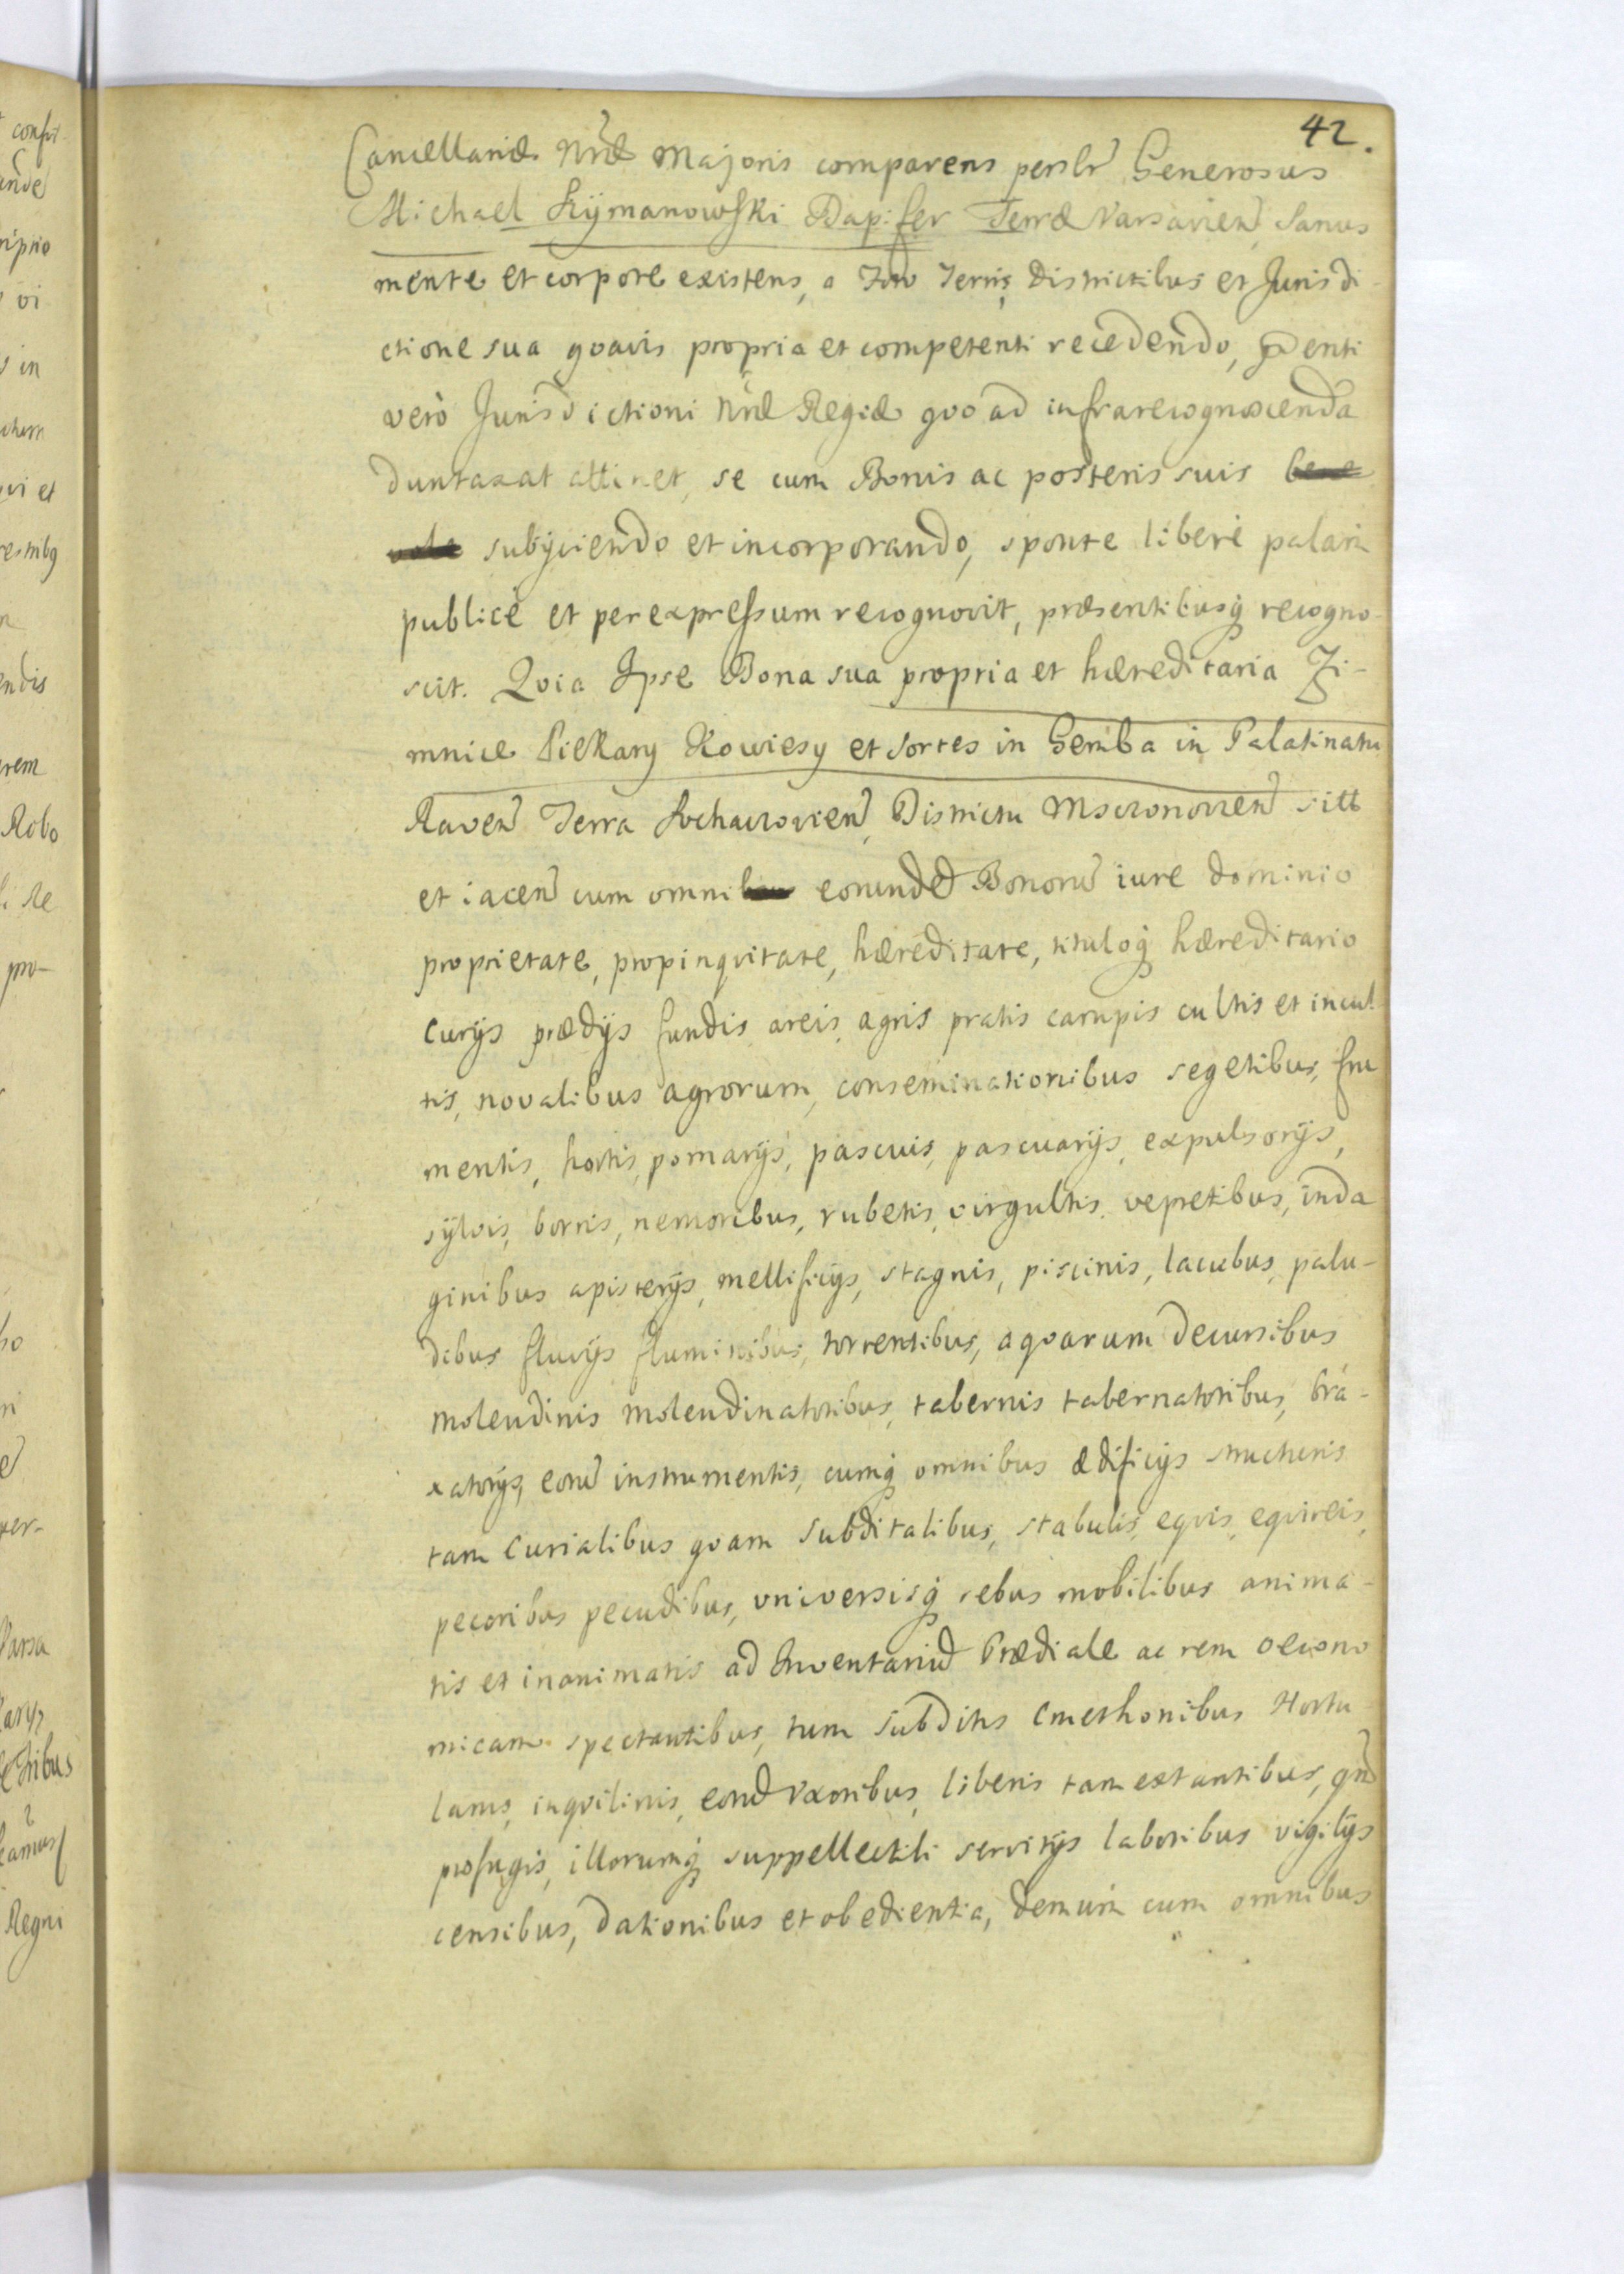 42.
Cancellariæ Nræ Majoris comparens perslr Generosus
Michael Rÿmanowski Dapifer Terræ Varsavien, Sanus
mente et corpore existens, a Terris Districtibus et Jurisdi-
ctione sua quavis propria et competenti recedendo, pnti
verò Jurisdictioni Nræ Regiæ quo ad infrarecognoscenda
duntaxat attinet, se cum Bonis ac posteris suis
subÿciendo et incorporando, sponte liberè palàm
publicè et per expressum recognovit, præsentibusq recogno-
scit. Quia Ipse Bona sua propria et hæreditaria Zi-
mnice Piekary Kowiesy et sortes in Gemba in Palatinatu
Raven Terra Sochaczovien, Districtu Mscxonovien sitt
et iacen cum omni eorunde Bonoru iure dominio
proprietate, propinquitate, hæreditate, tituloq hæreditario
curÿs prædÿs fundis areis, agris pratis campis cultis et incul
tis, novalibus agrorum, conseminationibus segetibus, fru
mentis, hortis, pomarÿs, pascuis, pascuarÿs, expulsorÿs,
sÿlvis, borris, nemoribus, rubetis, virgultis, vepretibus, inda
ginibus apisterÿs, mellificÿs, stagnis, piscinis, lacubus, palu-
dibus fluvÿs fluminibus, torrentibus, aquarum decursibus
molendinis molendinatoribus, tabernis tabernatoribus, bra-
xatorÿs, eoru instrumentis, cumq omnibus ædificÿs structuris
tam curialibus quam subditalibus, stabulis, equis, equireis,
pecoribus pecudibus, universisq rebus mobilibus anima-
tis et inanimatis ad Inventariu Prædiale ac rem oecono
micam spectantibus, tum subditis Cmethonibus Hortu
lanis, inquilinis, eorud Uxoribus, liberis tam extantibus, qm
profugis, illorumq suppellectili servitÿs laboribus vigilÿs
censibus, dationibus et obedientia, demum cum omnibus